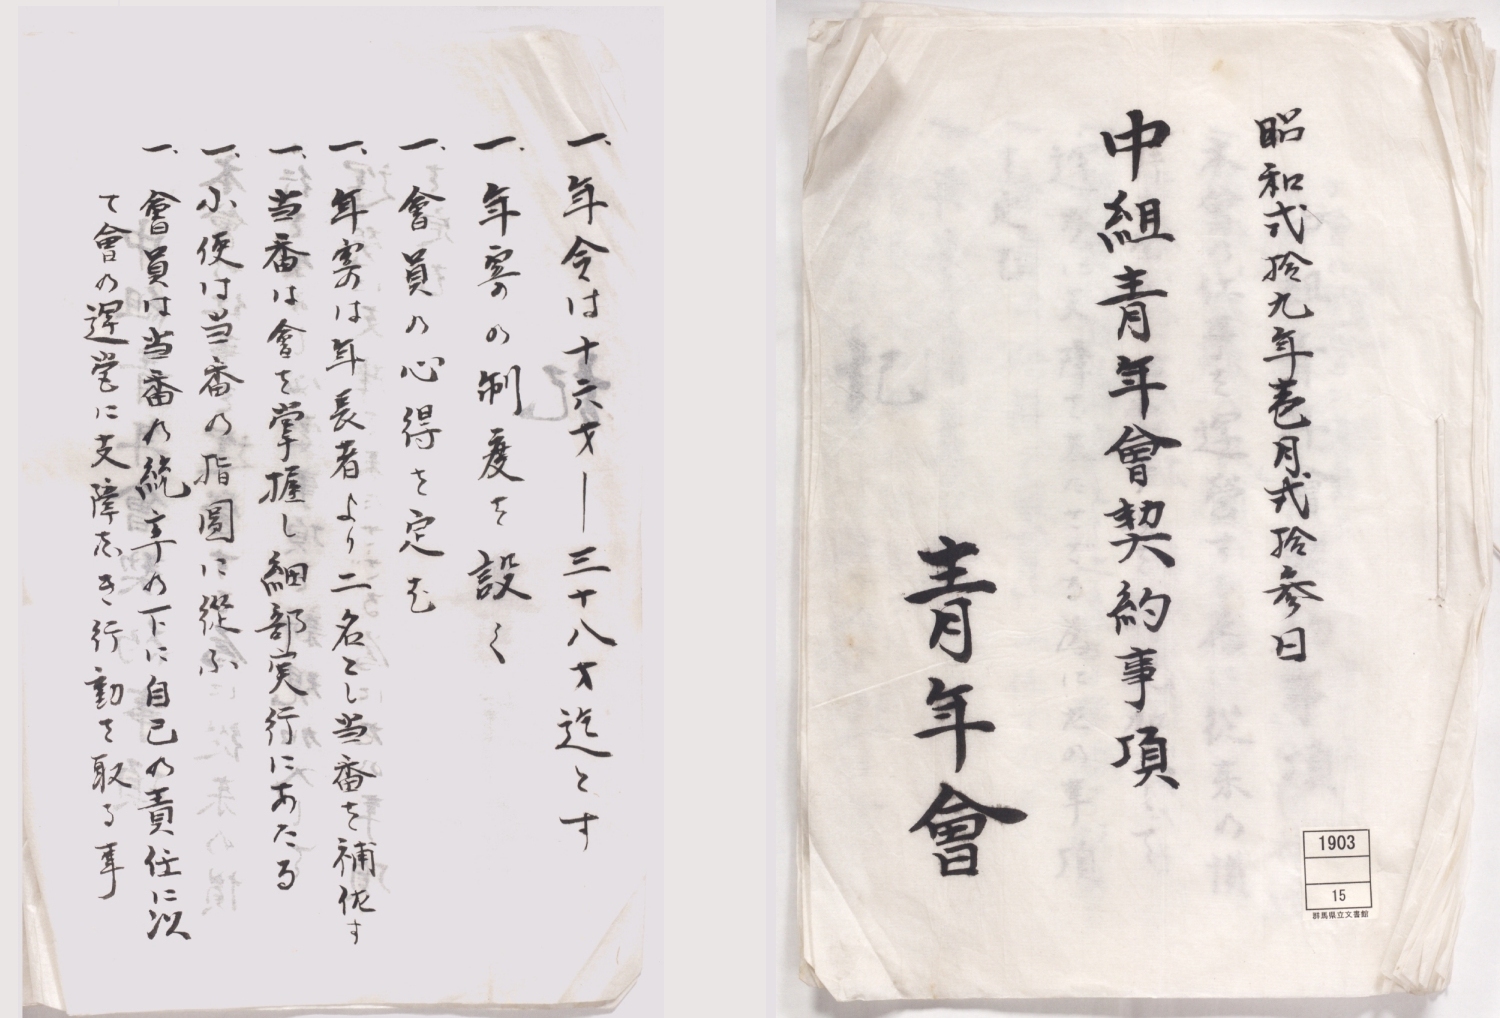 昭和弐拾九年壱月弐拾参日
中組青年會契約事項
青年會
1903
15
群馬県立文書館
一、年令は十六才―三十八才迄とす
一、年寄の制度を設く
一、會員の心得を定む
一、年寄は年長者より二名とし当番を補佐す
一、当番は會を掌握し細部実行にあたる
一、小使は当番の指圖に従ふ
一、會員は当番の統率の下に自己の責任に以
て會の運営に支障なき行動を取る事